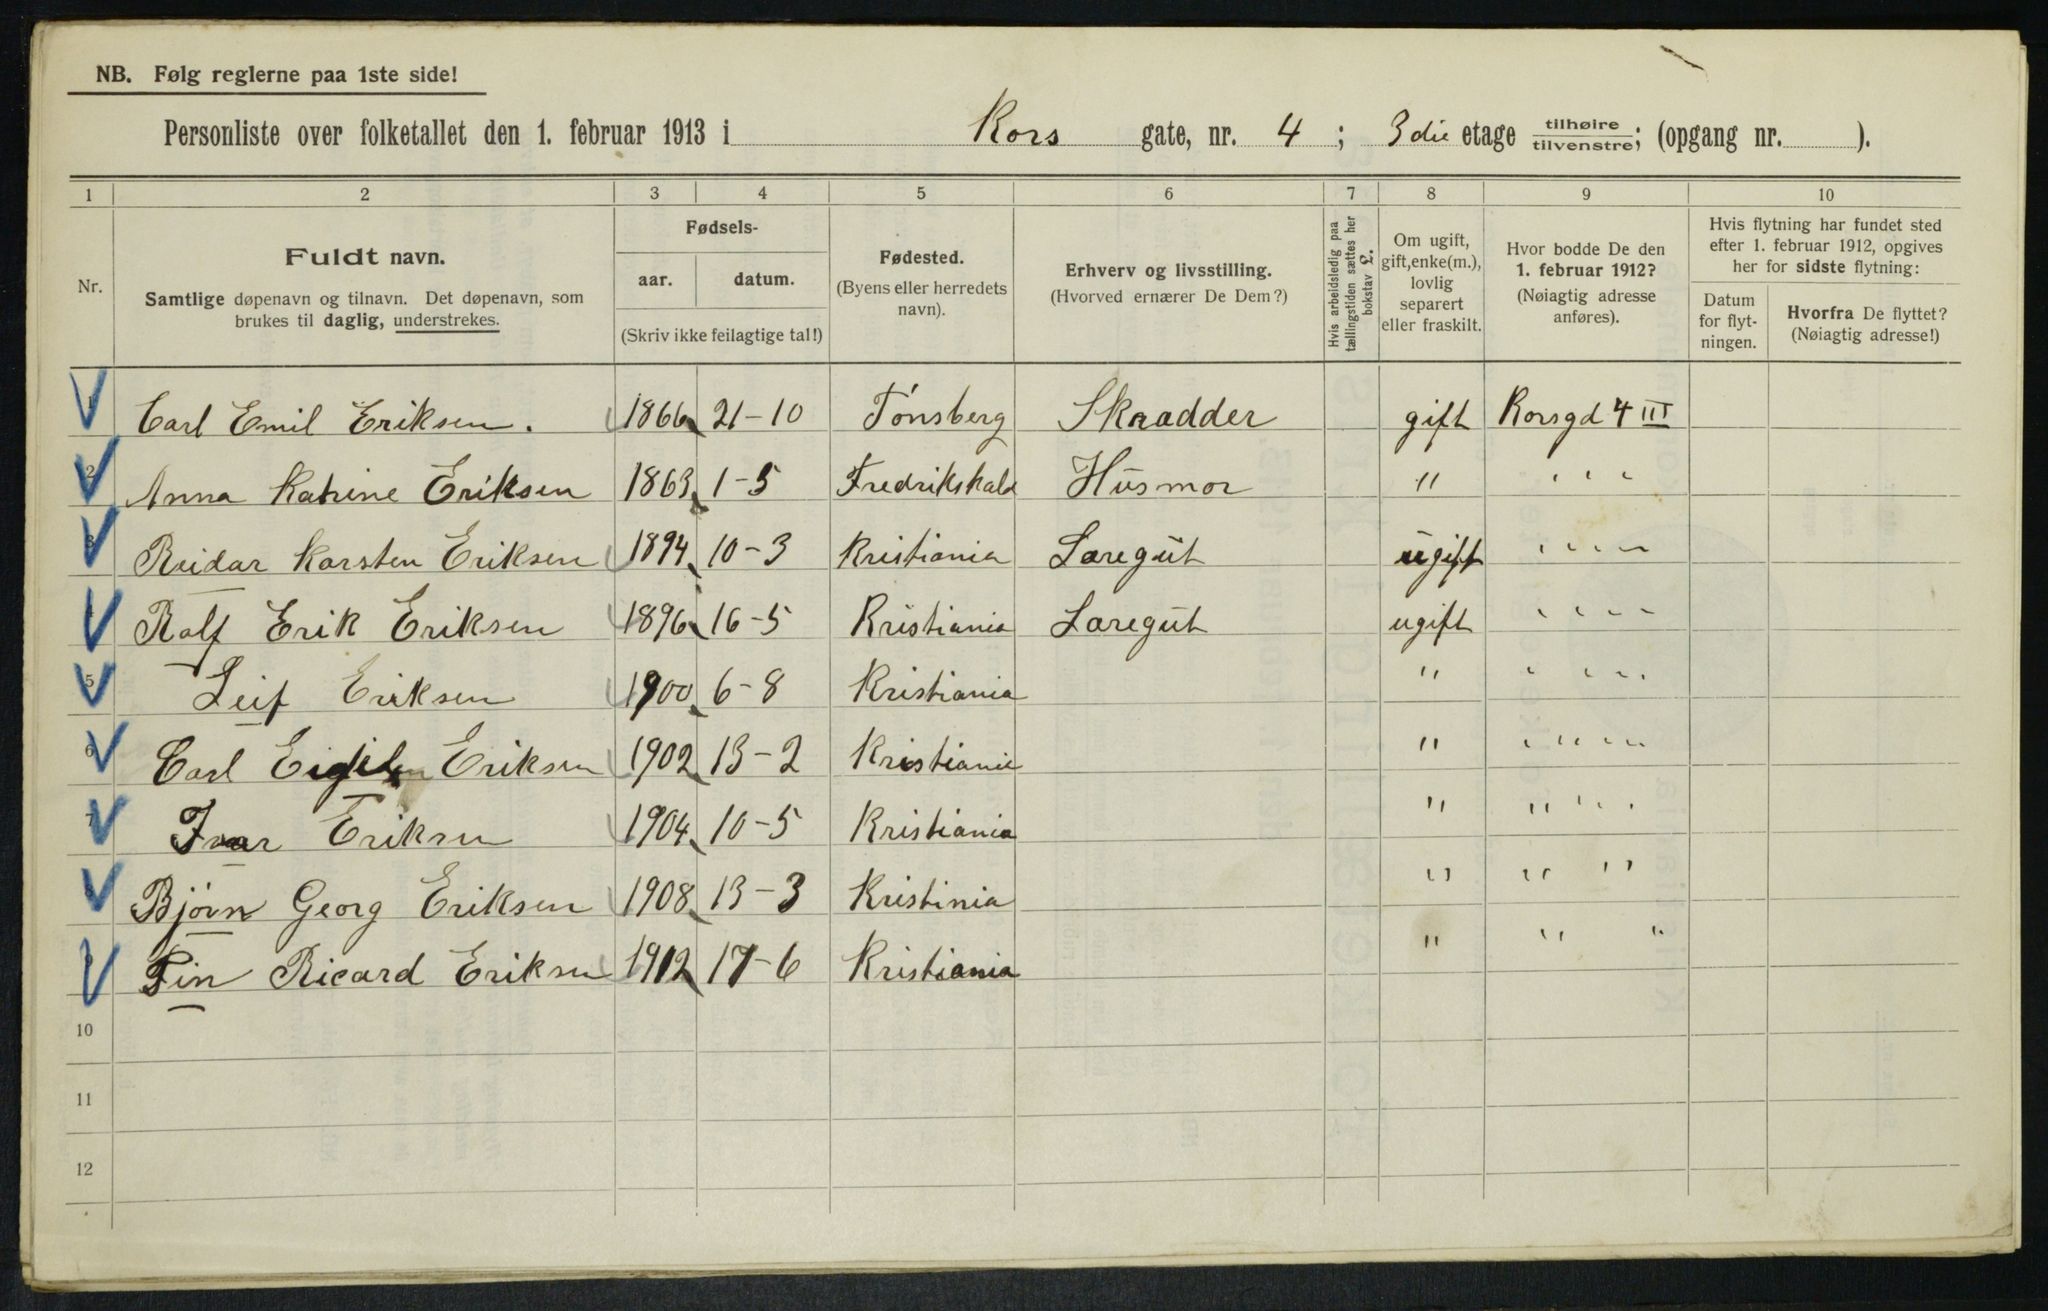 NB. Følg reglerne paa 1ste side!
Personliste over folketallet den 1. februar 1913 i Kors gate, nr. 4 ; 3die etage tilhøire tilvenstre; (opgang nr. ).
1 2 3 4 5 6 7 8 9 10
Nr.
Fuldt navn.
Samtlige døpenavn og tilnavn. Det døpenavn, som
brukes til daglig, understrekes.
Fødsels-
aar. datum.
(Skriv ikke feilagtige tal!)
Fødested.
(Byens eller herredets
navn).
Erhverv og livsstilling.
(Hvorved ernærer De Dem?)
Hvis arbeidsledig paa
tællingstiden sættes her
bokstav L.
Om ugift,
gift, enke(m.),
lovlig
separert
eller fraskilt.
Hvor bodde De den
1. februar 1912?
(Nøiagtig adresse
anføres).
Hvis flytning har fundet sted
efter 1. februar 1912, opgives
her for sidste flytning:
Datum
for flyt-
ningen.
Hvorfra De flyttet?
(Nøiagtig adresse!)
1 Carl Emil Eriksen. 1866 21-10 Tönsberg Skradder gift Korsgd 4 III
2 Anna Katrine Eriksen 1863 1-5 Fredrikshald Husmor " " "
3 Reidar Karsten Eriksen 1894 10-3 Kristiania Læregut ugift " "
4 Rolf Erik Eriksen 1896 16-5 Kristiania Læregut ugift " "
5 Leif Eriksen 1900 6-8 Kristiania " " "
6 Carl Eigil Eriksen 1902 13-2 Kristiania " " "
7 Ivar Eriksen 1904 10-5 Kristiania " " "
8 Bjövn Georg Eriksen 1908 13-3 Kristinia " " "
9 Fin Ricard Eriksen 1912 17-6 Kristiania " " "
10
11
12